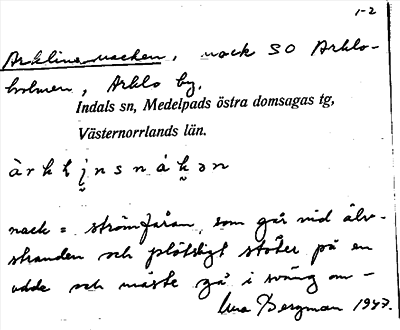 1-2
Arklinsnacken, nack SO Arklo-
holmen, Arklo by,
Indals sn, Medelpads östra domsagas tg,
Västernorrlands län.
nack = strömfåran, som går vid älv-
stranden och plötsligt stöter på en
udde och måste gå i sväng om –
Bergman 1947.